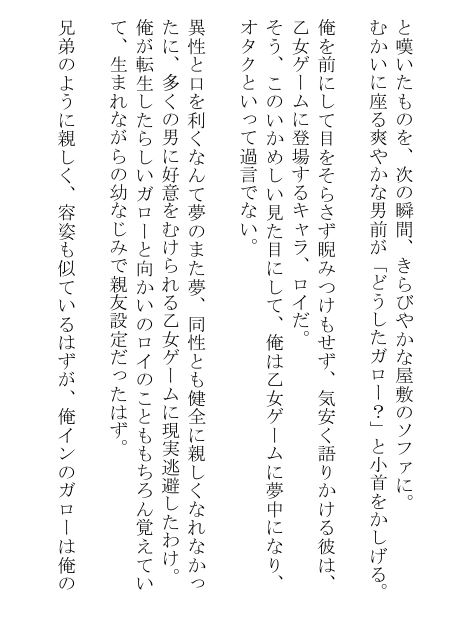 と嘆いたものを、次の瞬間、きらびやかな屋敷のソファに。
むかいに座る爽やかな男前が「どうしたガロー？」と小首をかしげる。
俺を前にして目をそらさず睨みつけもせず、気安く語りかける彼は、
乙女ゲームに登場するキャラ、ロイだ。
そう、このいかめしい見た目にして、俺は乙女ゲームに夢中になり、
オタクといって過言でない。
異性と口を利くなんて夢のまた夢、同性とも健全に親しくなれなかっ
たに、多くの男に好意をむけられる乙女ゲームに現実逃避したわけ。
俺が転生したらしいガローと向かいのロイのことももちろん覚えてい
て、生まれながらの幼なじみで親友設定だったはず。
兄弟のように親しく、容姿も似ているはずが、俺インのガローは俺の